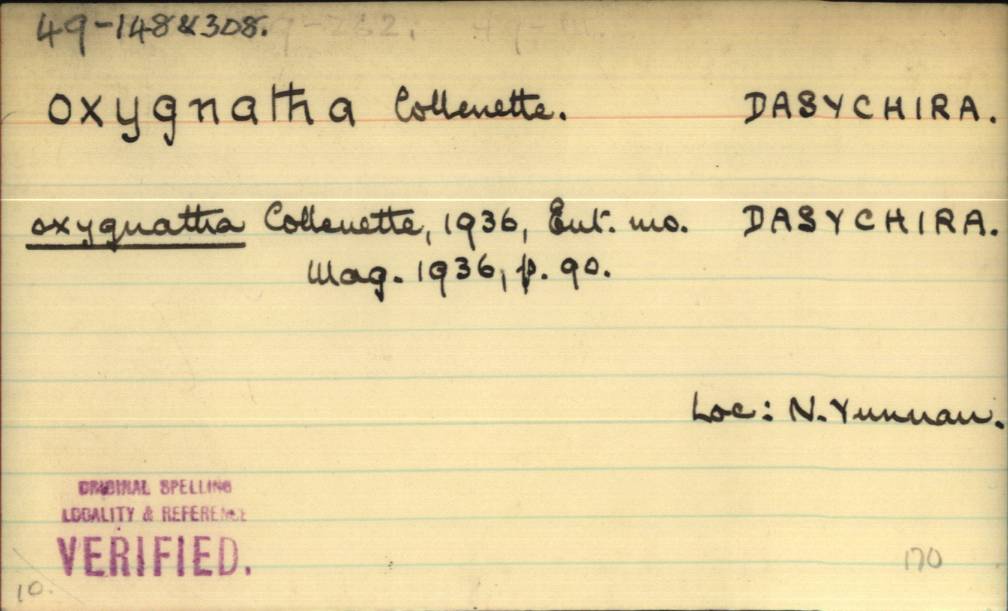 49-148&308.
oxygnatha Collenette. DASYCHIRA.
oxygnatha Collenette, 1936, Ent. mo. DASYCHIRA.
Mag. 1936, p. 90.
Loc: N. Yunnan.
ORIGINAL SPELLING
LOCALITY & REFERENCE
VERIFIED.
170
10.